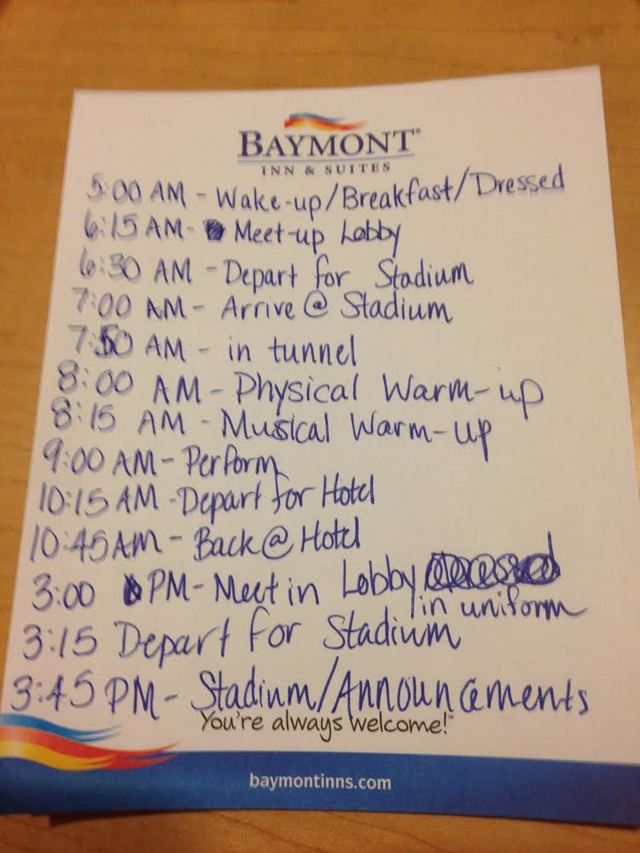 BAYMONT
INN & SUITES
5:00 AM - Wake-up/Breakfast/Dressed
6:15 AM- Meet-up Lobby
6:30 AM - Depart for Stadium
7:00 AM - Arrive @ Stadium
7:50 AM - in tunnel
8:00 AM - Physical Warm-up
8:15 AM - Musical Warm-up
9:00 AM - Perform
10:15 AM - Depart for Hotel
10:45 AM - Back @ Hotel
3:00 PM - Meet in Lobby
in uniform
3:15 Depart for Stadium
3:45 PM - Stadium/Announcements
You're always welcome!
baymontinns.com